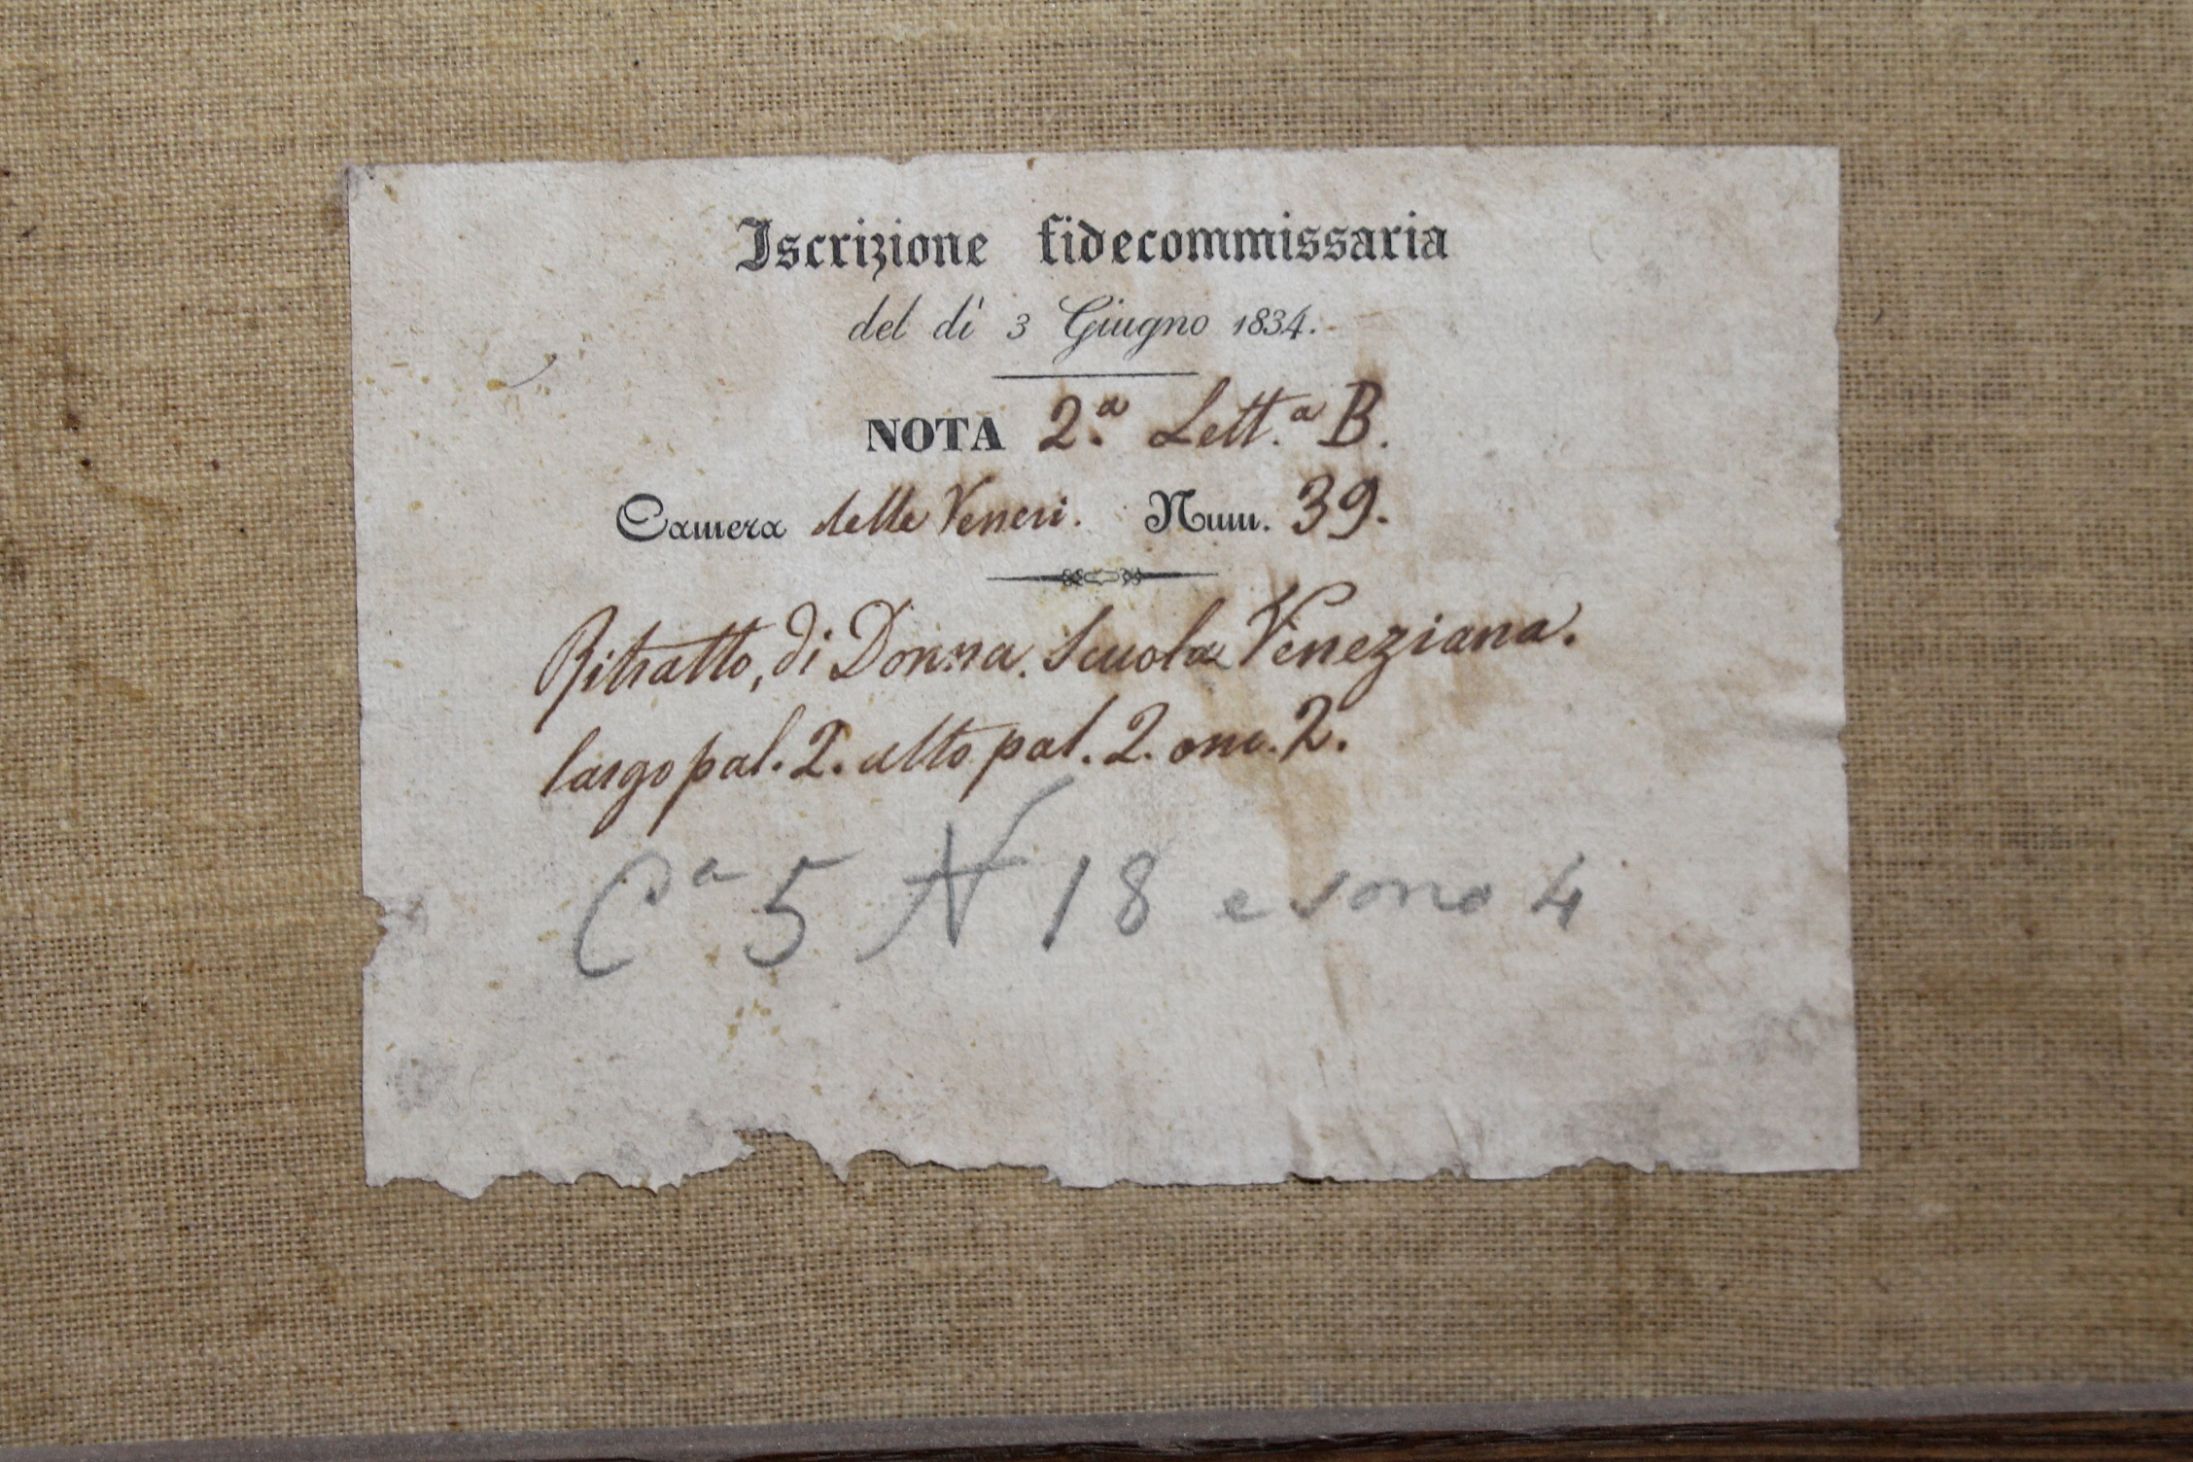 Iscrizione fidecommissaria
del dì 3 Giugno 1834.
NOTA 2.ª Lett.ª B.
Camera delle Veneri. Num. 39.
Ritratto, di Donna. Scuola Veneziana.
largo pal. 2. alto pal. 2. onc. 2.
Cª 5 N 18 e sono 4